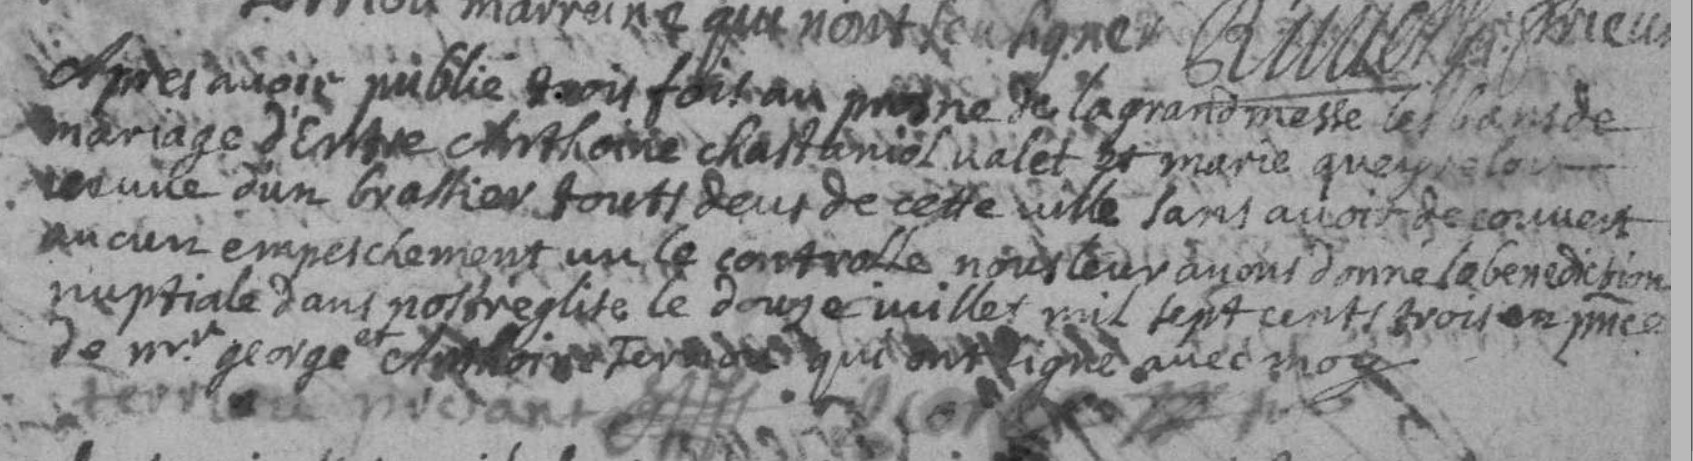 marraine qui nont sceu signer
Apres avoir publié trois fois au prosne de la grand messe les bans de
mariage d'Entre Anthoine chastaniol valet et marie
veuve d'un brassier touts deus de cette ville sans avoir decouvert
aucun empeschement vu le controlle nous leur avons donné la benediction
nuptiale dans nostre eglise le douze iuillet mil sept cents trois en pnce
de mr. george et Anthoine Terriou qui ont signe avec moy
terriou présant